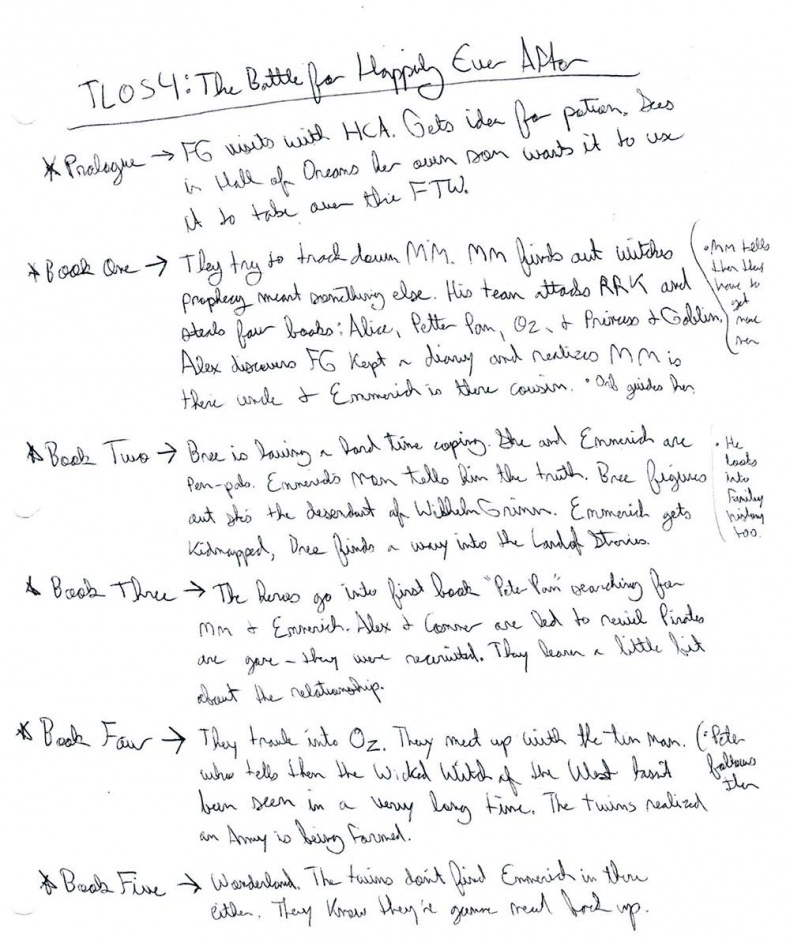 TLOS4: The Battle for Happily Ever After
* Prologue → FG visits with HCA. Gets idea for potion. Sees
in Hall of Dreams her own son wants it to use
it to take over the FTW.
* Book One → They try to track down MM. MM finds out witches
prophecy meant something else. His team attacks RRK and
steals four books: Alice, Petter Pan, Oz, & Princess & Goblin.
Alex discovers FG kept a diary and realizes MM is
there uncle & Emmerich is there cousin. • Orb guides her
• MM tells
them they
have to
get
more
men
* Book Two → Bree is having a hard time coping. She and Emmerich are
Pen-pals. Emmerich's Mom tells him the truth. Bree figures
out she's the descendant of Wilhelm Grimm. Emmerich gets
Kidnapped, Bree finds a way into the Land of Stories.
• He
looks
into
Family
history
too.
* Book Three → The heroes go into first book "Peter Pan" searching for
MM & Emmerich. Alex & Conner are led to Pirates
are gone - they were recruited. They learn a little bit
about the relationship.
* Book Four → They travel into Oz. They meet up with the tin man.
who tells them the Wicked Witch of the West hasn't
been seen in a very long time. The twins realized
an Army is being formed.
• Peter
follows
them
* Book Five → Wonderland. The twins don't find Emmerich in there
either. They Know they're gunna need back up.